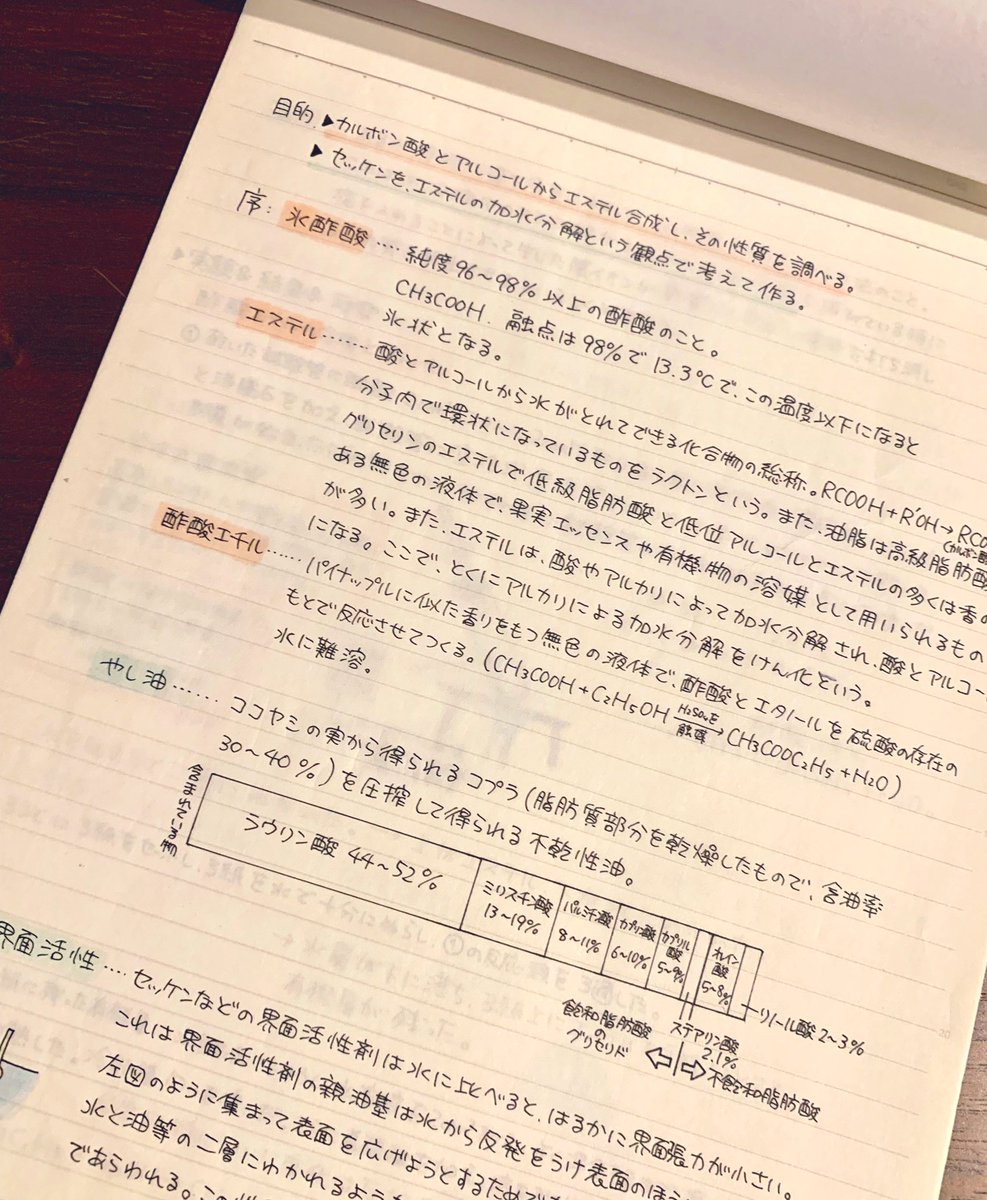 目的 ▶カルボン酸とアルコールからエステル合成し、その性質を調べる。
▶セッケンを、エステルの加水分解という観点で考えて作る。
序: 氷酢酸‥‥純度96~98%以上の酢酸のこと。
CH3COOH. 融点は98%で13.3℃で、この温度以下になると
氷状となる。
エステル‥‥‥酸とアルコールから水がとれてできる化合物の総称。RCOOH+R'OH→RCO
(カルボン酸
分子内で環状になっているものをラクトンという。また、油脂は高級脂肪酸
グリセリンのエステルで低級脂肪酸と低位アルコールとエステルの多くは香の
ある無色の液体で、果実エッセンスや有機物の溶媒として用いられるもの
が多い。また、エステルは、酸やアルカリによって加水分解され、酸とアルコー
になる。ここで、とくにアルカリによる加水分解をけん化という。
酢酸エチル‥‥‥パイナップルに似た香りをもつ無色の液体で、酢酸とエタノールを硫酸の存在の
もとで反応させてつくる。(CH3COOH+C2H5OH H2SO4を触媒→ CH3COOC2H5+H2O)
水に難溶。
やし油‥‥‥ココヤシの実から得られるコプラ(脂肪質部分を乾燥したもので、含油率
30~40%)を圧搾して得られる不乾性油。
ラウリン酸 44~52%
ミリスチン酸
13~19%
パルミチン酸
8~11%
カプリン酸
6~10%
カプリル酸
5~9%
オレイン酸
5~8%
リノール酸 2~3%
ステアリン酸
2.1%
飽和脂肪酸
の
グリセリド
不飽和脂肪酸
界面活性‥‥セッケンなどの界面活性剤は水に上とべると、はるかに界面張力が小さい。
これは界面活性剤の親油基は水から反発をうけ表面のほう
左図のように集まって表面を広げようとするためで
水と油等の二層にわかれるような
であらわれる。